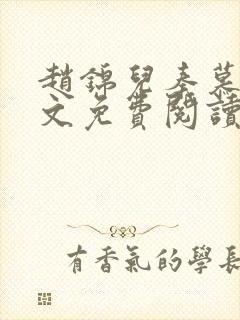 趙錦兒秦慕
文免費閱讀
有香氣的學長